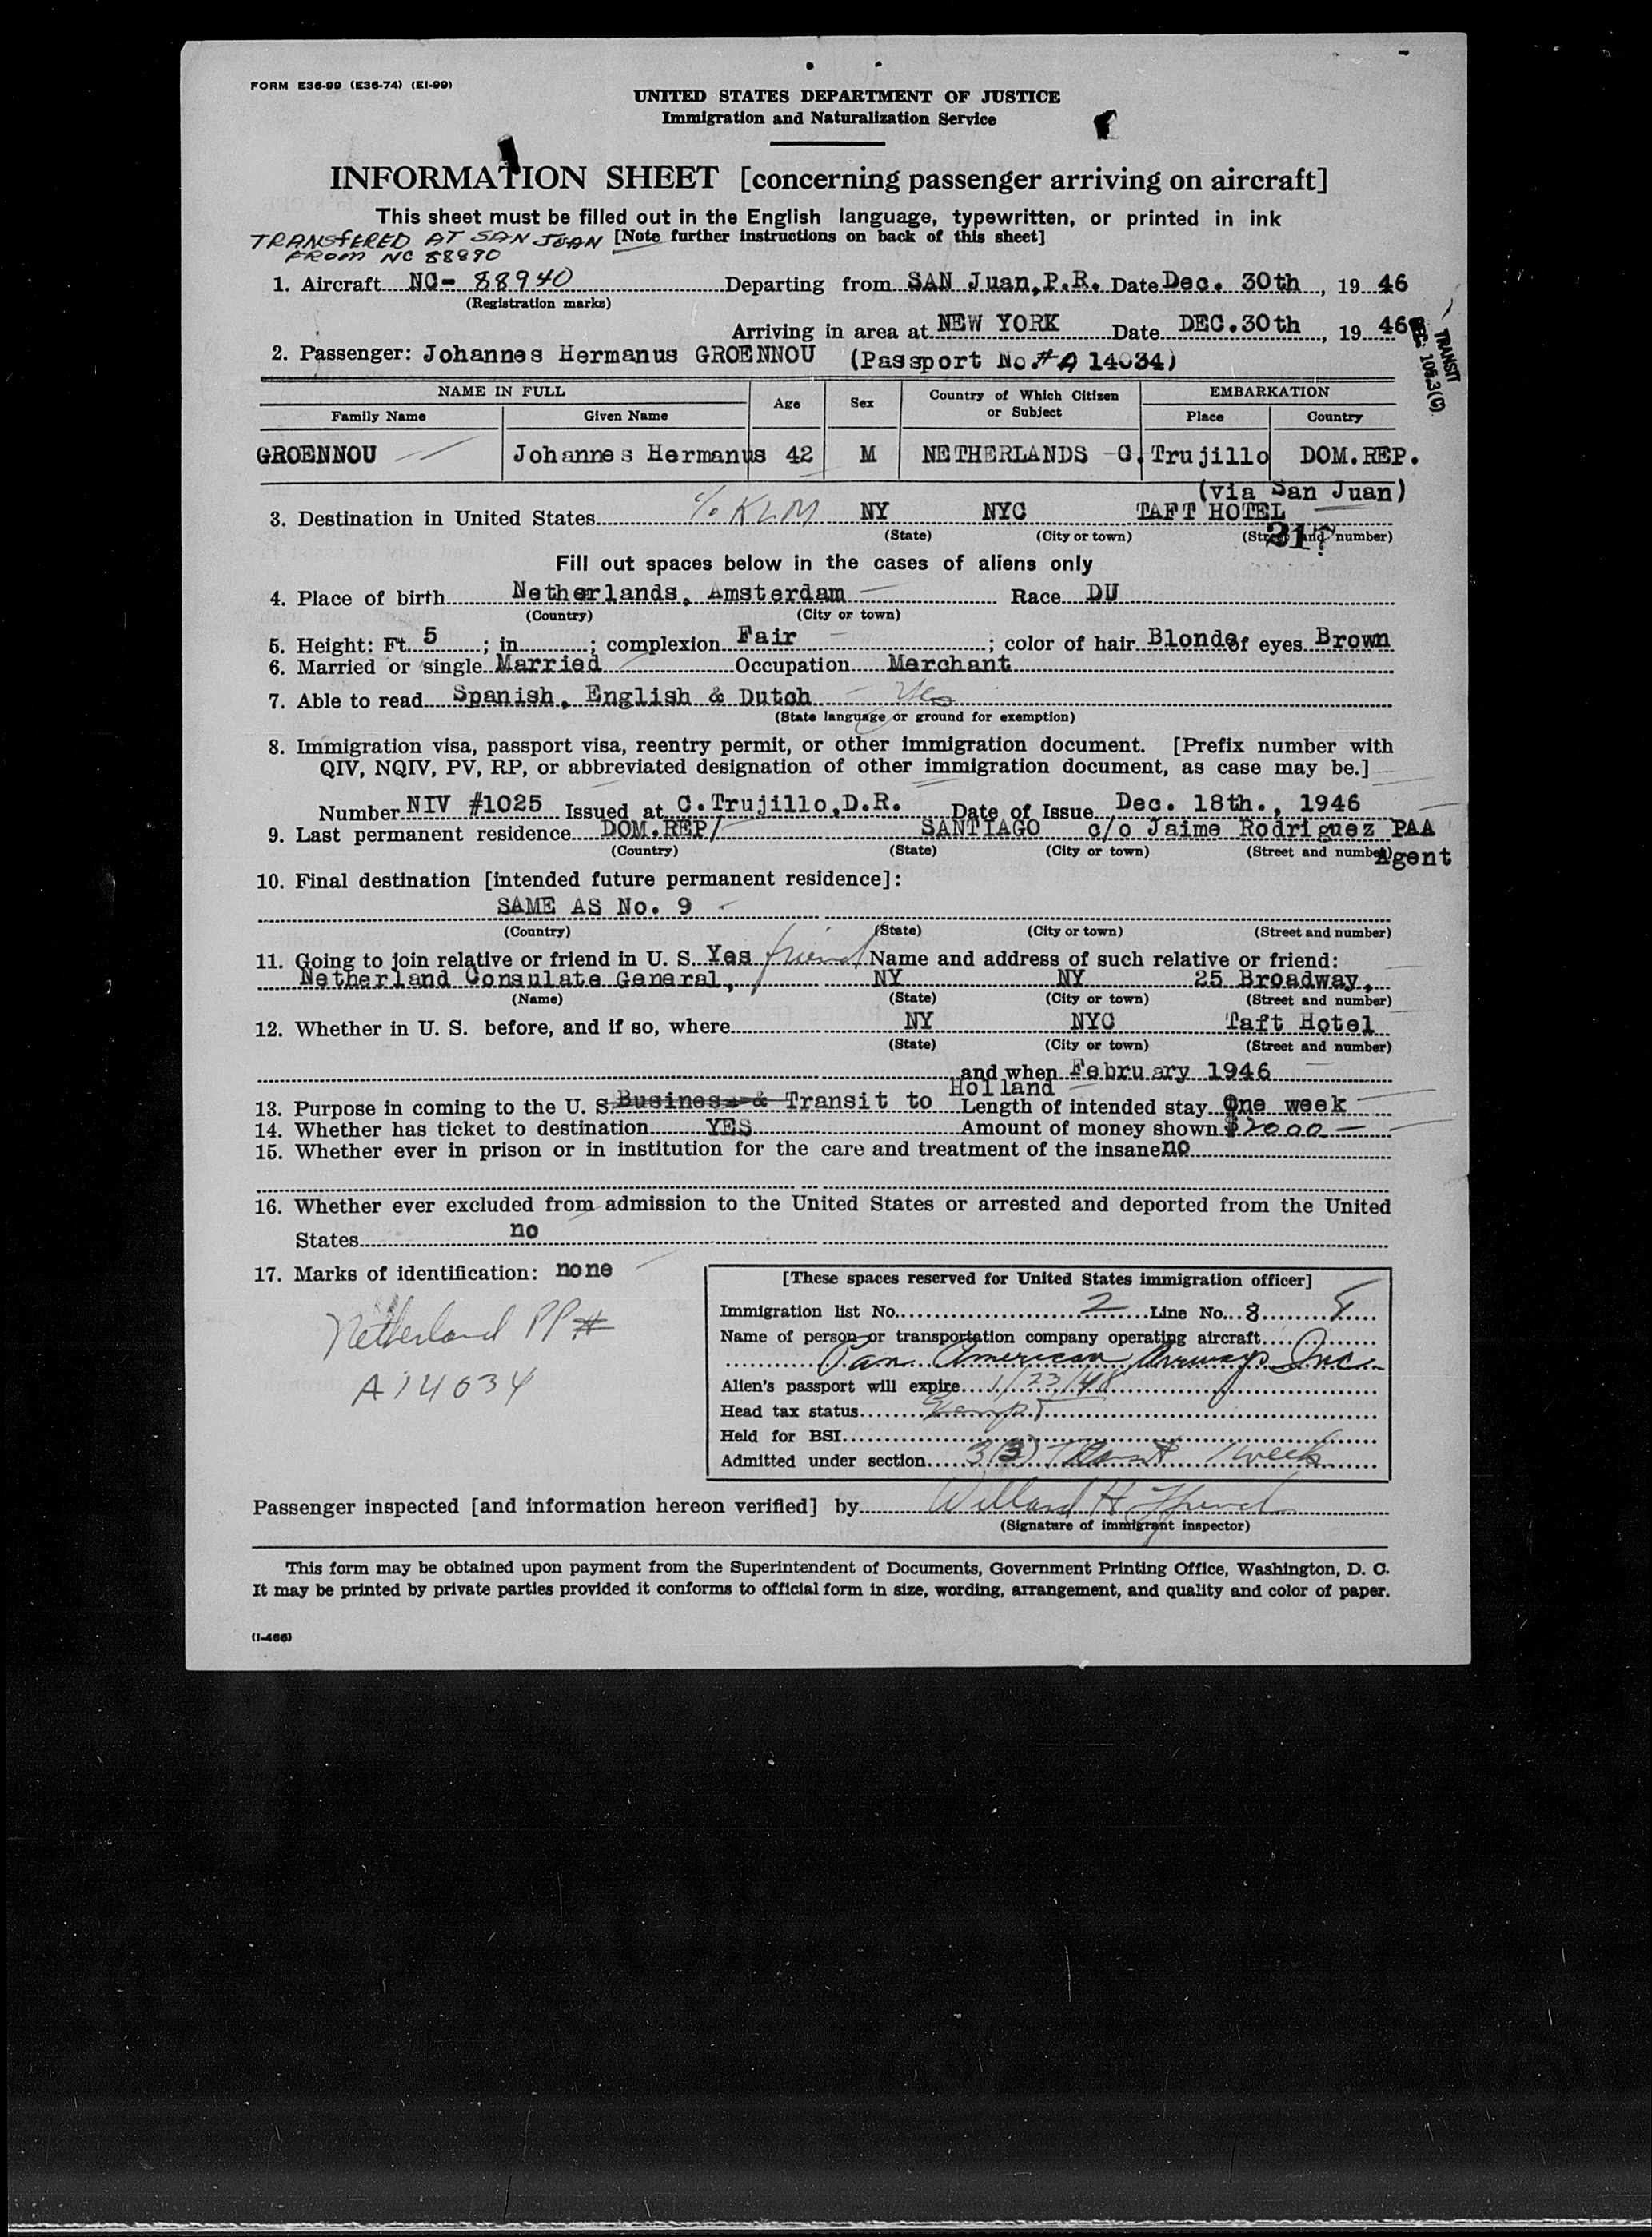 FORM E36-99 (E36-74) (EI-99)
UNITED STATES DEPARTMENT OF JUSTICE
Immigration and Naturalization Service
INFORMATION SHEET [concerning passenger arriving on aircraft]
This sheet must be filled out in the English language, typewritten, or printed in ink
TRANSFERED AT SAN JUAN [Note further instructions on back of this sheet]
FROM NC 88890
1. Aircraft NC- 88940 Departing from SAN Juan, P.R. Date Dec. 30th, 19 46
(Registration marks)
Arriving in area at NEW YORK Date DEC.30th, 19 46
TRANSIT
2. Passenger: Johannes Hermanus GROENNOU (Passport No.# A 14034)
NAME IN FULL Age Sex Country of Which Citizen or Subject EMBARKATION
Family Name Given Name Place Country
GROENNOU Johannes Hermanus 42 M NETHERLANDS C.Trujillo DOM.REP.
(via San Juan)
3. Destination in United States c/o KLM NY NYC TAFT HOTEL
(State) (City or town) (Street and number)
Fill out spaces below in the cases of aliens only
4. Place of birth Netherlands, Amsterdam Race DU
(Country) (City or town)
5. Height: Ft. 5; in.; complexion Fair; color of hair Blonde of eyes Brown
6. Married or single Married Occupation Merchant
7. Able to read Spanish, English & Dutch Yes
(State language or ground for exemption)
8. Immigration visa, passport visa, reentry permit, or other immigration document. [Prefix number with
QIV, NQIV, PV, RP, or abbreviated designation of other immigration document, as case may be.]
Number NIV #1025 Issued at C.Trujillo,D.R. Date of Issue Dec. 18th., 1946
9. Last permanent residence DOM.REP/ SANTIAGO c/o Jaime Rodriguez PAA
(Country) (State) (City or town) (Street and number) Agent
10. Final destination [intended future permanent residence]:
SAME AS No. 9
(Country) (State) (City or town) (Street and number)
11. Going to join relative or friend in U. S. Yes friend Name and address of such relative or friend:
Netherland Consulate General, NY NY 25 Broadway,
(Name) (State) (City or town) (Street and number)
12. Whether in U. S. before, and if so, where NY NYC Taft Hotel
(State) (City or town) (Street and number)
and when February 1946
Holland
13. Purpose in coming to the U. S. Business & Transit to Length of intended stay One week
14. Whether has ticket to destination YES Amount of money shown $2000.—
15. Whether ever in prison or in institution for the care and treatment of the insane no
16. Whether ever excluded from admission to the United States or arrested and deported from the United
States no
17. Marks of identification: none
Netherland PP#
A14034
[These spaces reserved for United States immigration officer]
Immigration list No. 2 Line No. 8
Name of person or transportation company operating aircraft
Pan American Airways Inc.
Alien's passport will expire 1/23/48
Head tax status Exempt
Held for BSI
Admitted under section 3(3) Transit 1 week
Passenger inspected [and information hereon verified] by Willard H.
(Signature of immigrant inspector)
This form may be obtained upon payment from the Superintendent of Documents, Government Printing Office, Washington, D. C.
It may be printed by private parties provided it conforms to official form in size, wording, arrangement, and quality and color of paper.
(I-466)